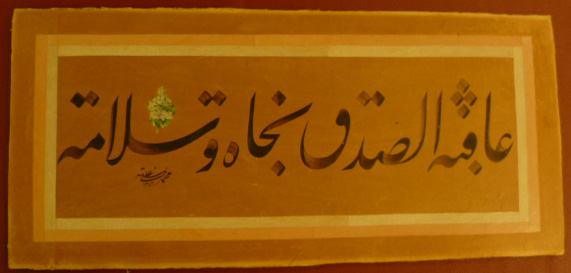 عاقبة الصدق نجاة وسلامة